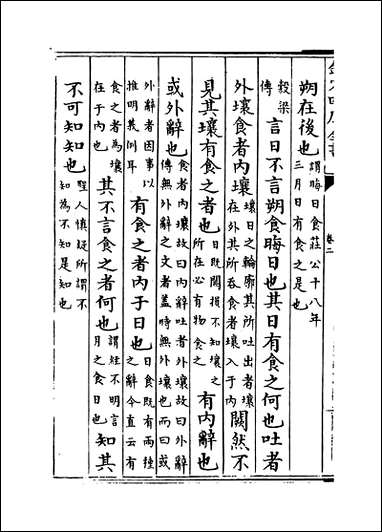 朔在後也謂晦日食莊公十八年三月日有食之是也
榖梁傳言日不言朔食晦日也其日有食之何也吐者
外壤食者内壤壤日之輪廓其所吐出者壤在外其所吞食者壤入于内闕然不
見其壤有食之者也日既闕損不知壤之所在必有物食之有内辭也
或外辭也食者内壤故曰内辭吐者外壤故曰外辭傳無外辭之文者蓋時無外壤也而曰或
外辭者因事以推明義例耳有食之者内于日也日食既有兩種之辭今直云有
食之者為壤在于内也其不言食之者何也謂經不明言月之食日也知其
不可知知也聖人慎疑所謂不知為不知是知也